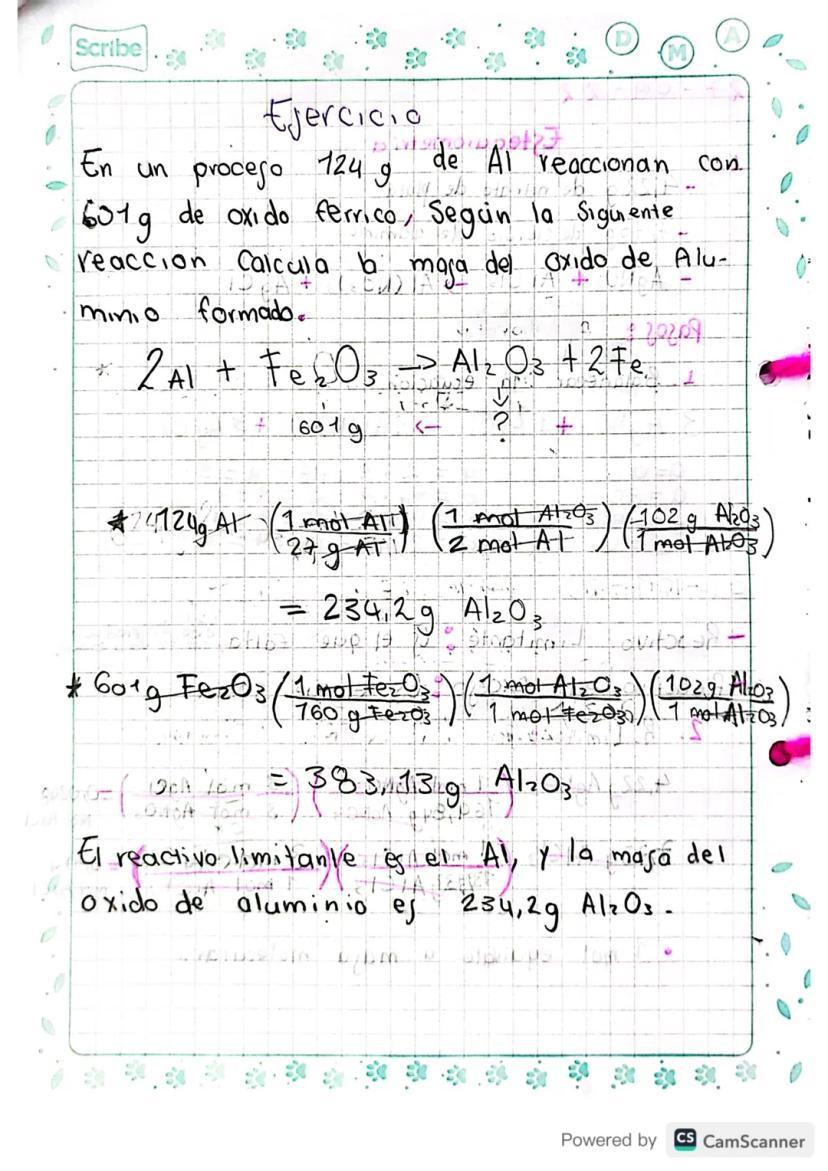 Scribe
D M A
Ejercicio
En un proceso 124 g de Al reaccionan con
601 g de oxido ferrico, Según la Siguiente
reaccion Calcula la masa del oxido de Alu-
minio formado.
* 2Al + Fe₂O₃ → Al₂O₃ + 2Fe
601 g ?
* 124g Al (1 mol Al / 27 g Al) (1 mol Al₂O₃ / 2 mol Al) (102 g Al₂O₃ / 1 mol Al₂O₃)
= 234,2g Al₂O₃
* 601g Fe₂O₃ (1 mol Fe₂O₃ / 160 g Fe₂O₃) (1 mol Al₂O₃ / 1 mol Fe₂O₃) (102g Al₂O₃ / 1 mol Al₂O₃)
= 383,13g Al₂O₃
El reactivo limitante es el Al, y la masa del
oxido de aluminio es 234,2g Al₂O₃.
Powered by CS CamScanner